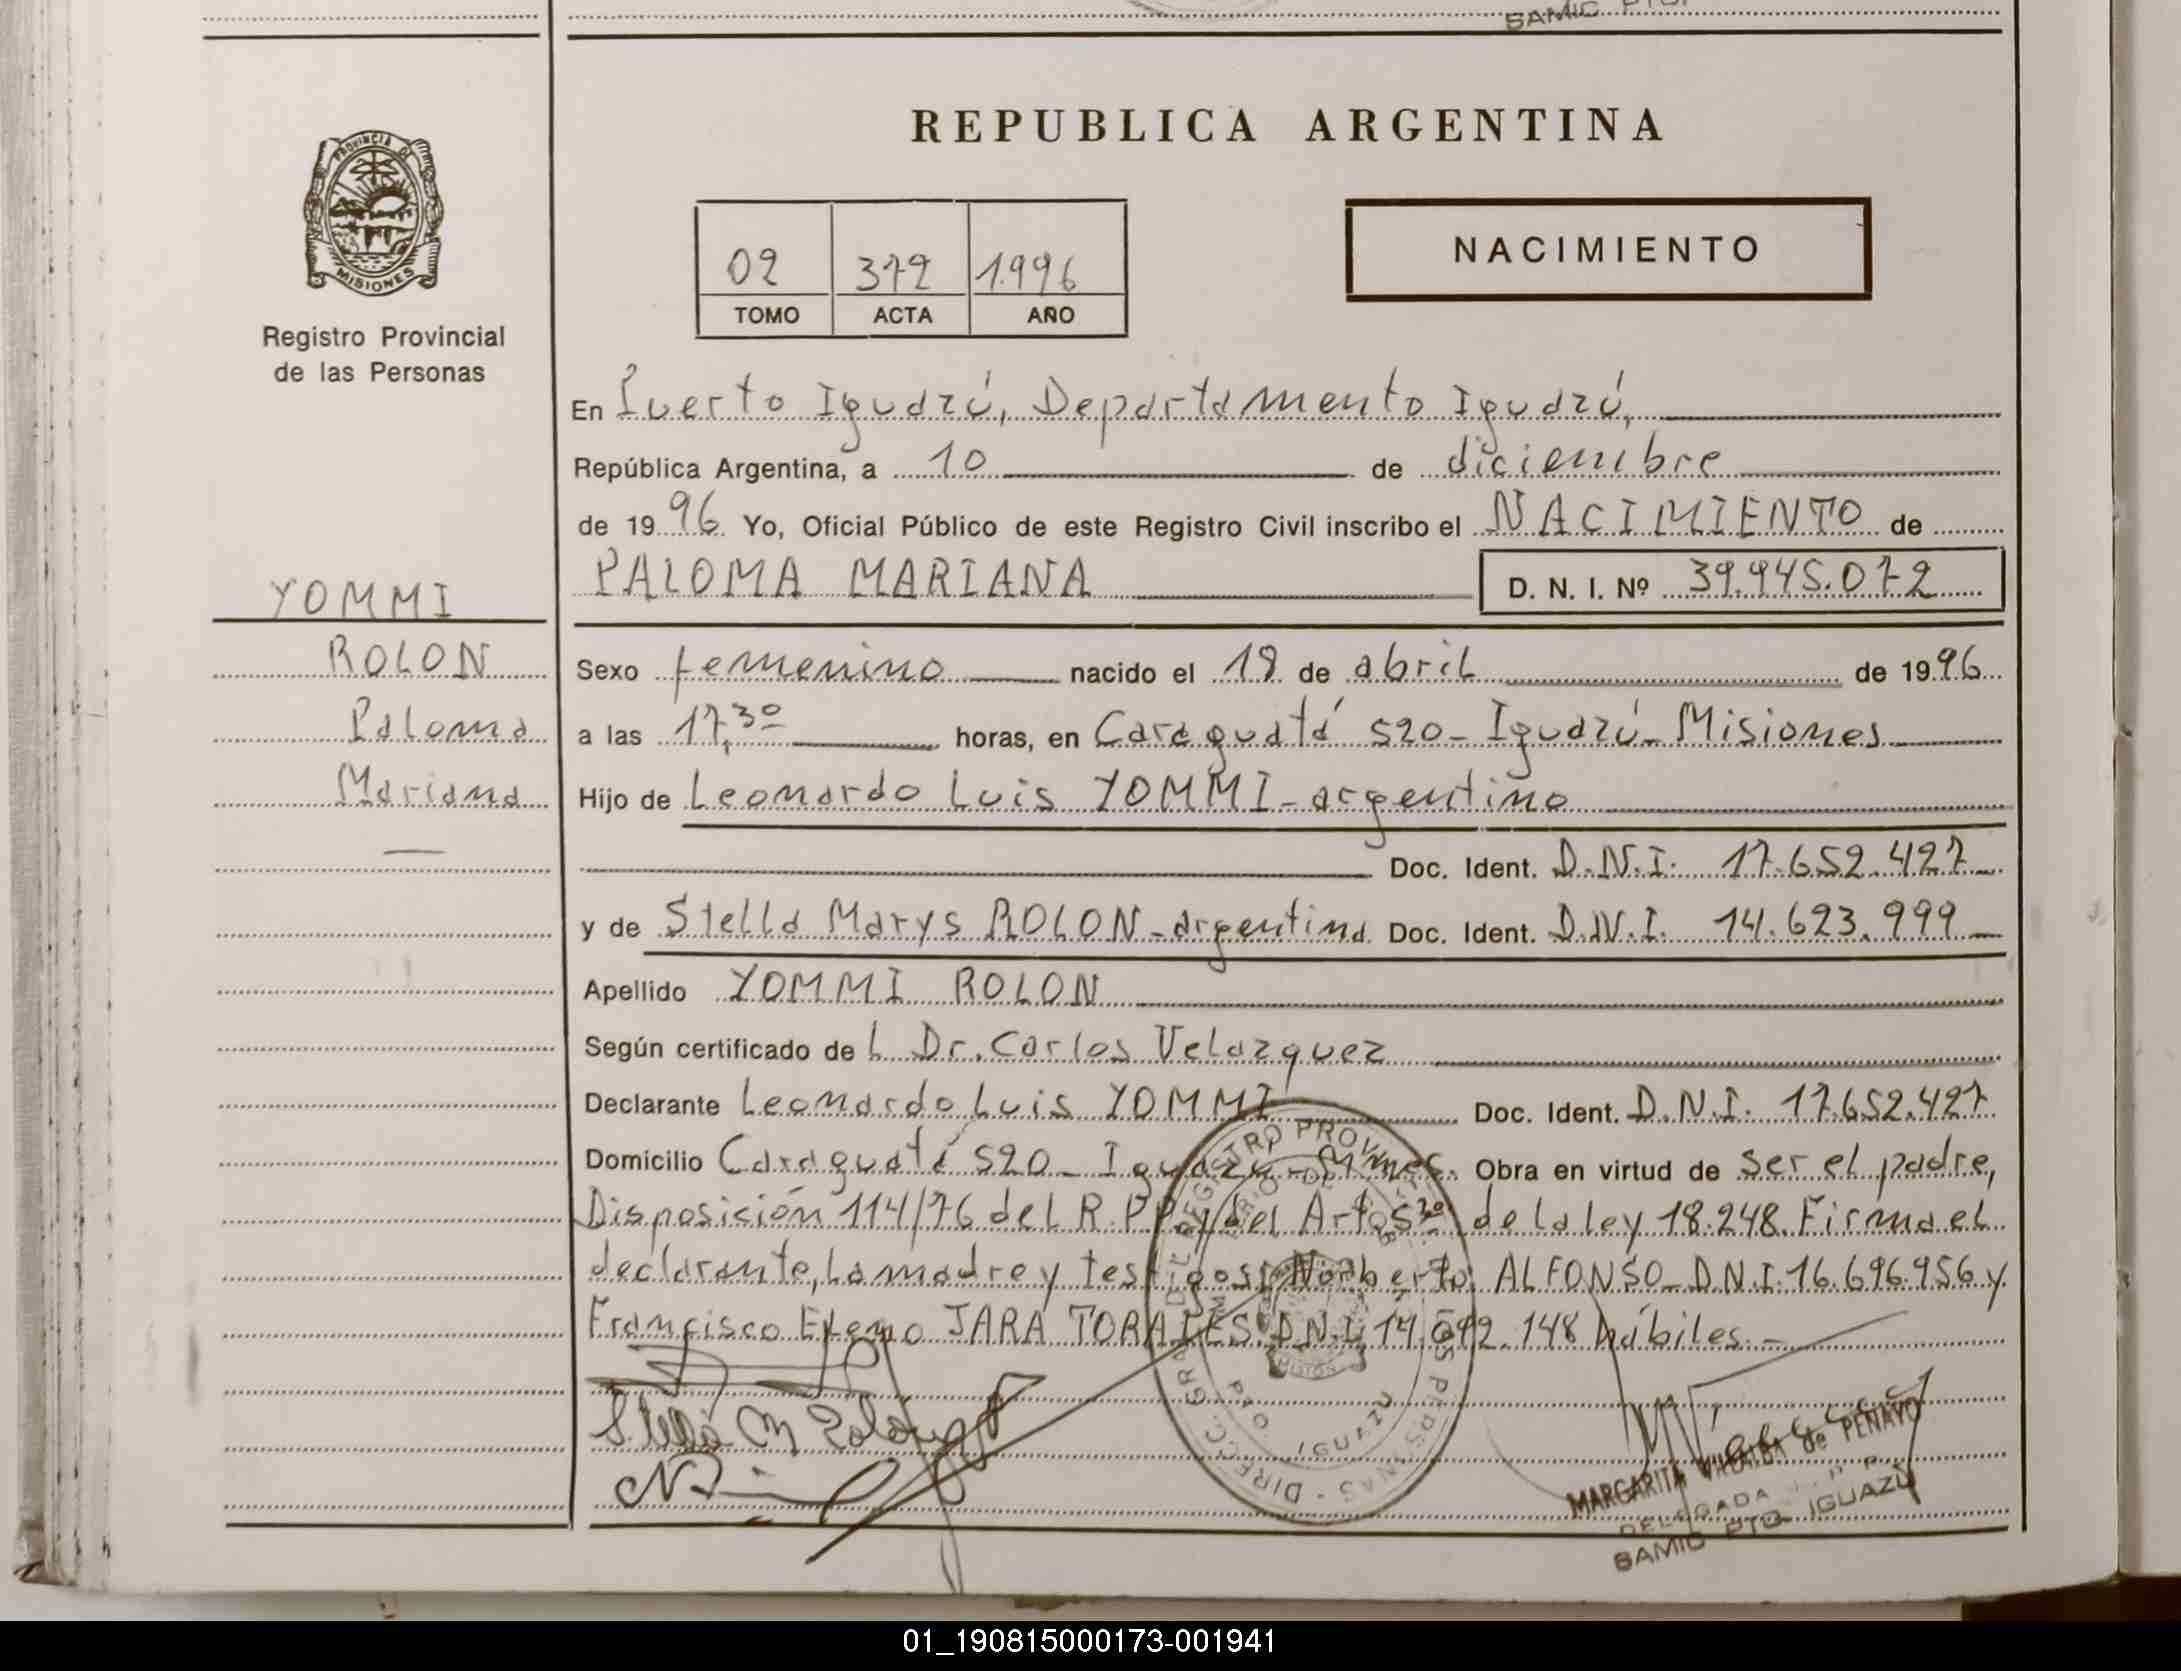 SAMIC PTO.
REPUBLICA ARGENTINA
PROVINCIA DE
MISIONES
Registro Provincial
de las Personas
02 372 1.996
TOMO ACTA AÑO
NACIMIENTO
En Puerto Iguazú, Departamento Iguazú,
República Argentina, a 10 de diciembre
de 1996 Yo, Oficial Público de este Registro Civil inscribo el NACIMIENTO de
PALOMA MARIANA D. N. I. Nº 39.945.072
YOMMI
ROLON
Paloma
Mariana
Sexo femenino nacido el 18 de abril de 1996
a las 17,30 horas, en Caraguatá 520- Iguazú- Misiones
Hijo de Leonardo Luis YOMMI- argentino
Doc. Ident. D.N.I. 17.652.427
y de Stella Marys ROLON-argentina Doc. Ident. D.N.I. 14.623.999
Apellido YOMMI ROLON
Según certificado de L Dr. Carlos Velazquez
Declarante Leonardo Luis YOMMI Doc. Ident. D.N.I. 17.652.427
Domicilio Caraguatá 520- Iguazú- Mnes. Obra en virtud de ser el padre,
Disposición 114/76 del R.P.P. y del Arto 5º de la ley 18.248. Firma el
declarante, la madre y testigos: Norberto ALFONSO- D.N.I. 16.696.956 y
Francisco JARA D.N.I. 148 hábiles.-
Stella M Rolón
REGISTRO PROVINCIAL DE LAS PERSONAS - DIRECC. GRAL.
IGUAZU
MARGARITA VILLALBA de PENAYO
DELEGADA R. P. P.
SAMIC PTO. IGUAZU
01_190815000173-001941